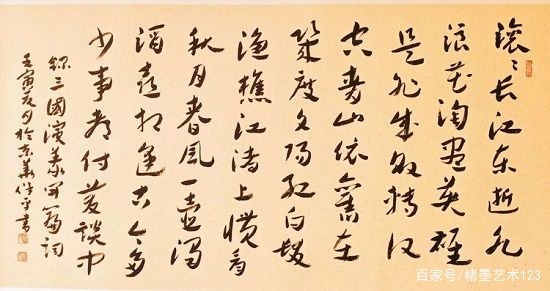 滚〻长江东逝水
浪花淘尽英雄
是非成败转头
空青山依舊在
几度夕阳红白髮
渔樵江渚上惯看
秋月春风一壶浊
酒喜相逢古今多
少事都付笑谈中
錄三國演義开篇詞
壬寅夏月於京华 书
百家号/楮墨艺术123